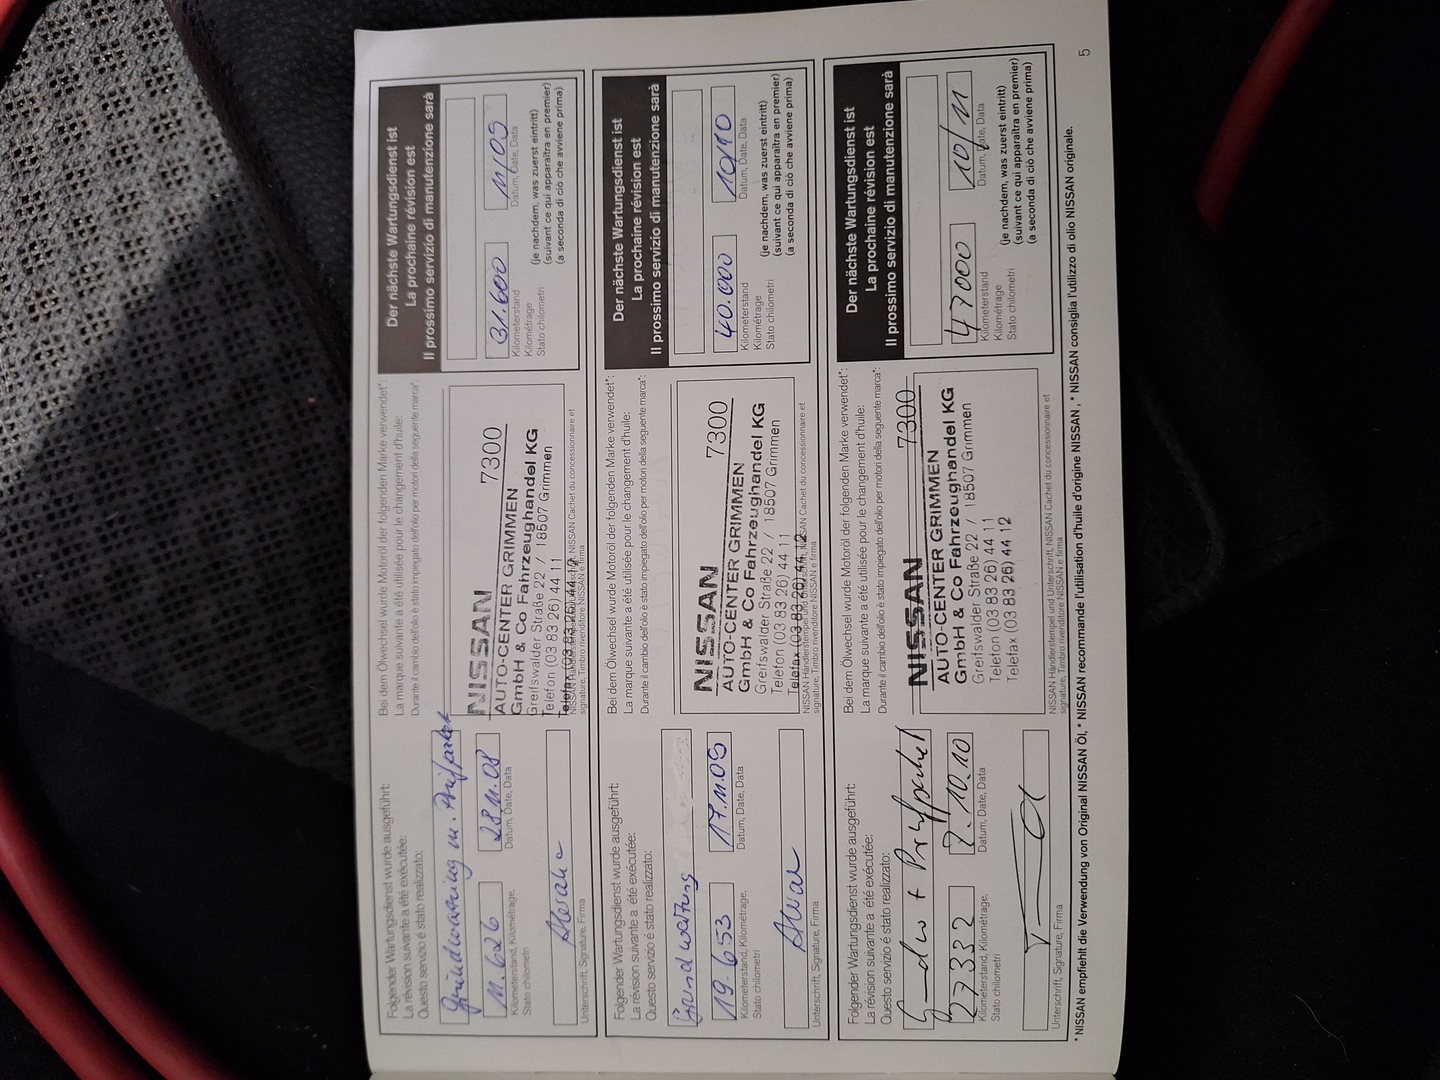 Folgender Wartungsdienst wurde ausgeführt:
La révision suivante a été exécutée:
Questo servizio é stato realizzato:
Grundwartung m. Prüfpaket
11.626
28.11.08
Kilometerstand, Kilométrage,
Stato chilometri
Datum, Date, Data
Unterschrift, Signature, Firma
Bei dem Ölwechsel wurde Motoröl der folgenden Marke verwendet*:
La marque suivante a été utilisée pour le changement d'huile:
Durante il cambio dell'olio è stato impiegato dell'olio per motori della seguente marca*:
NISSAN 7300
AUTO-CENTER GRIMMEN
GmbH & Co Fahrzeughandel KG
Greifswalder Straße 22 / 18507 Grimmen
Telefon (03 83 26) 44 11
Telefax (03 83 26) 44 12
NISSAN Cachet du concessionnaire et
signature, Timbro rivenditore NISSAN e firma
Der nächste Wartungsdienst ist
La prochaine révision est
Il prossimo servizio di manutenzione sarà
31.600
11/09
Kilometerstand
Kilométrage
Stato chilometri
Datum, Date, Data
(je nachdem, was zuerst eintritt)
(suivant ce qui apparaîtra en premier)
(a seconda di ciò che avviene prima)
Folgender Wartungsdienst wurde ausgeführt:
La révision suivante a été exécutée:
Questo servizio é stato realizzato:
Grundwartung
19.653
17.11.09
Kilometerstand, Kilométrage,
Stato chilometri
Datum, Date, Data
Unterschrift, Signature, Firma
Bei dem Ölwechsel wurde Motoröl der folgenden Marke verwendet*:
La marque suivante a été utilisée pour le changement d'huile:
Durante il cambio dell'olio è stato impiegato dell'olio per motori della seguente marca*:
NISSAN 7300
AUTO-CENTER GRIMMEN
GmbH & Co Fahrzeughandel KG
Greifswalder Straße 22 / 18507 Grimmen
Telefon (03 83 26) 44 11
Telefax (03 83 26) 44 12
NISSAN Händlerstempel und Unterschrift, NISSAN Cachet du concessionnaire et
signature, Timbro rivenditore NISSAN e firma
Der nächste Wartungsdienst ist
La prochaine révision est
Il prossimo servizio di manutenzione sarà
40.000
10/10
Kilometerstand
Kilométrage
Stato chilometri
Datum, Date, Data
(je nachdem, was zuerst eintritt)
(suivant ce qui apparaîtra en premier)
(a seconda di ciò che avviene prima)
Folgender Wartungsdienst wurde ausgeführt:
La révision suivante a été exécutée:
Questo servizio é stato realizzato:
+ Prüfpaket
27332
7.10.10
Kilometerstand, Kilométrage,
Stato chilometri
Datum, Date, Data
Unterschrift, Signature, Firma
Bei dem Ölwechsel wurde Motoröl der folgenden Marke verwendet*:
La marque suivante a été utilisée pour le changement d'huile:
Durante il cambio dell'olio è stato impiegato dell'olio per motori della seguente marca*:
NISSAN 7300
AUTO-CENTER GRIMMEN
GmbH & Co Fahrzeughandel KG
Greifswalder Straße 22 / 18507 Grimmen
Telefon (03 83 26) 44 11
Telefax (03 83 26) 44 12
NISSAN Händlerstempel und Unterschrift, NISSAN Cachet du concessionnaire et
signature, Timbro rivenditore NISSAN e firma
Der nächste Wartungsdienst ist
La prochaine révision est
Il prossimo servizio di manutenzione sarà
47000
10/11
Kilometerstand
Kilométrage
Stato chilometri
Datum, Date, Data
(je nachdem, was zuerst eintritt)
(suivant ce qui apparaîtra en premier)
(a seconda di ciò che avviene prima)
* NISSAN empfiehlt die Verwendung von Original NISSAN Öl, * NISSAN recommande l'utilisation d'huile d'origine NISSAN, * NISSAN consiglia l'utilizzo di olio NISSAN originale.
5